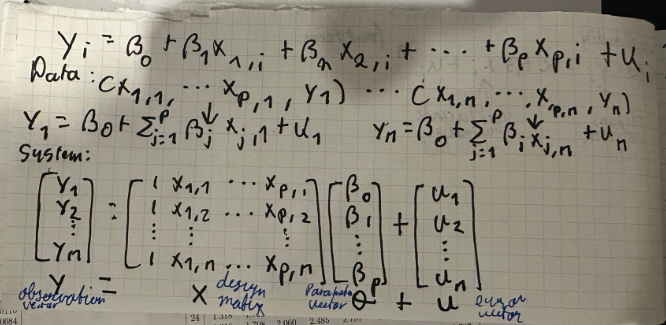 Yi = β0 + β1 x1,i + βn x2,i + ⋯ + βp xp,i + ui
Data: (x1,1, ⋯ xp,1, Y1) ⋯ (x1,n, ⋯, xp,n, Yn)
Y1 = β0 + Σ_{j=1}^{p} βj xj,1 + u1    Yn = β0 + Σ_{j=1}^{p} βi xj,n + un
System:
[Y1]   [1 x1,1 ⋯ xp,1] [β0]   [u1]
[Y2] = [1 x1,2 ⋯ xp,2] [β1] + [u2]
[⋮]   [⋮ ⋮ ⋮] [⋮]   [⋮]
[Yn]   [1 x1,n ⋯ xp,n] [βp]   [un]
Y = X θ + u
observation vector design matrix parameter vector error vector
0084 24 1.318
2.060 2.485